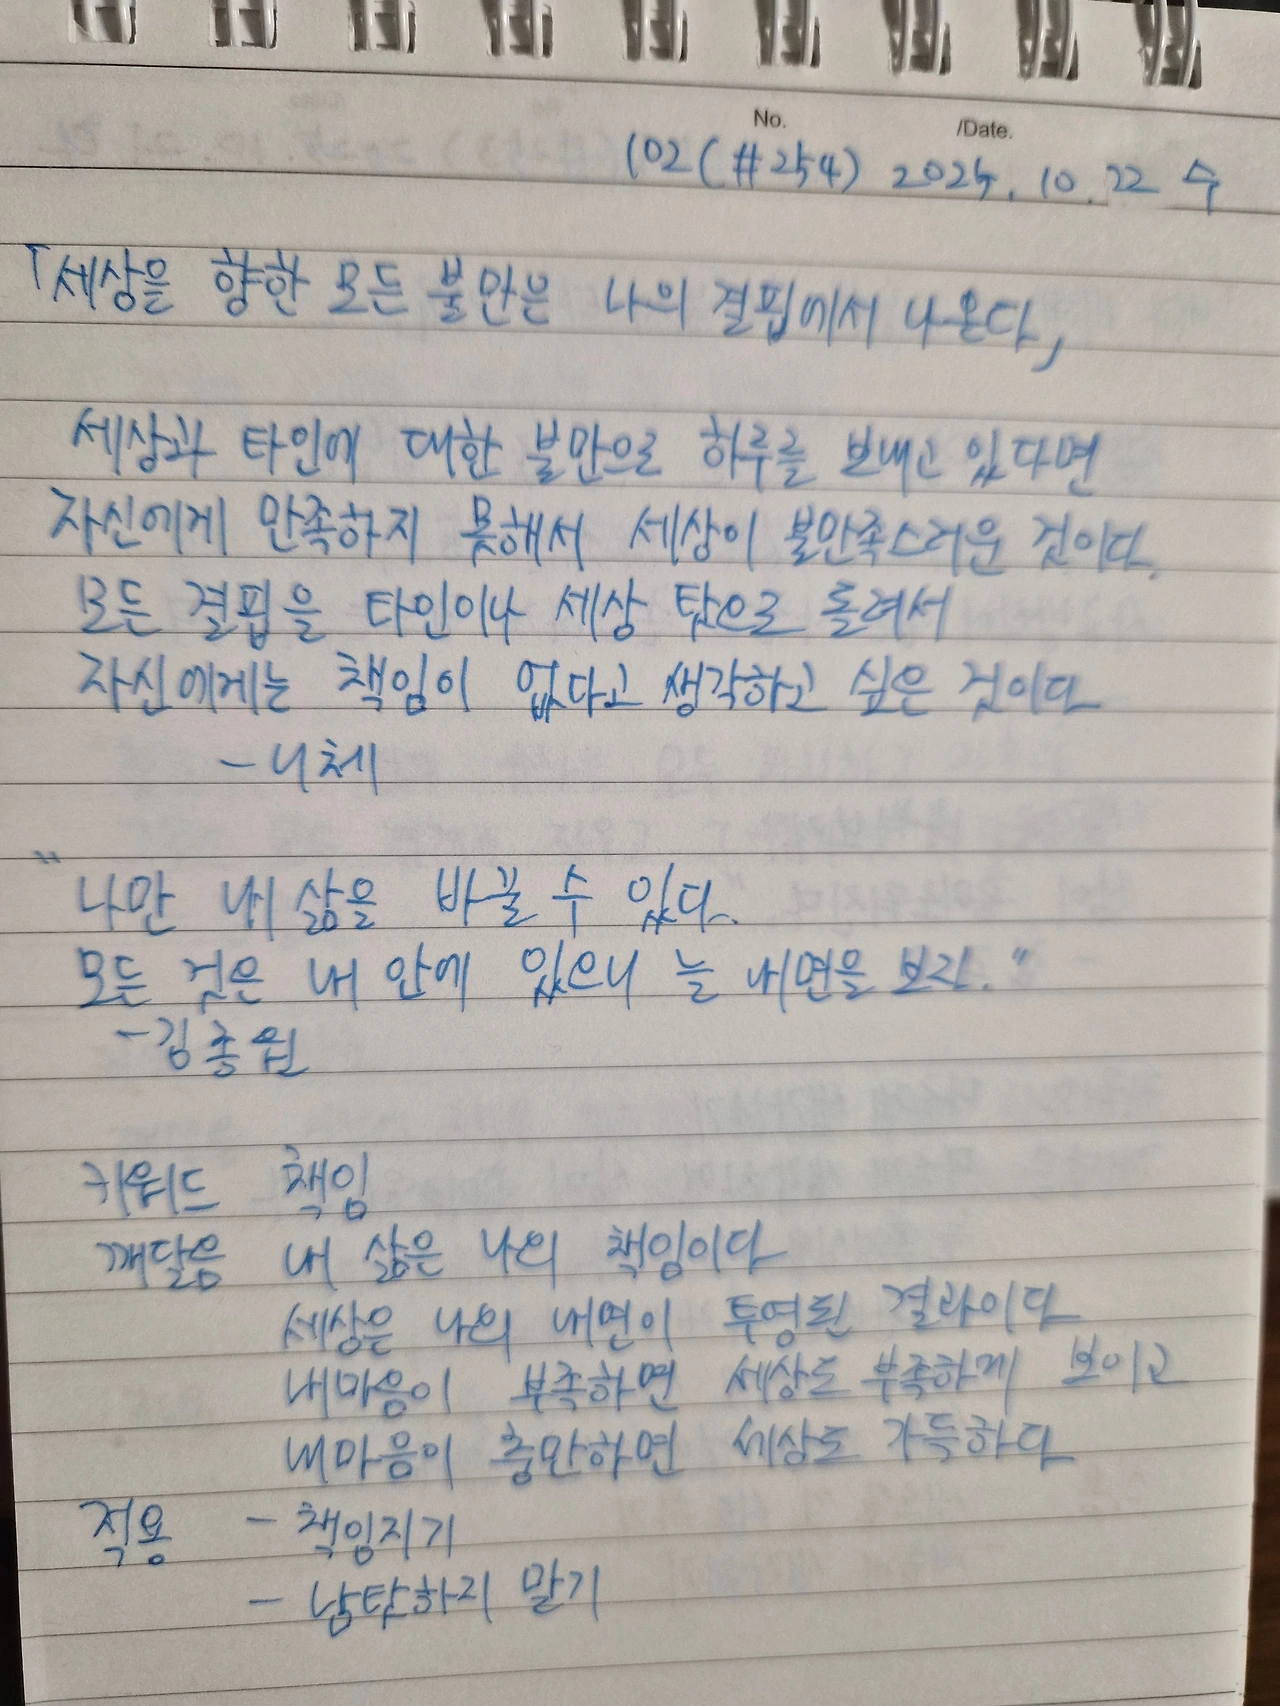 No. /Date.
102(#254) 2025. 10. 22 수
「세상을 향한 모든 불만은 나의 결핍에서 나온다」
세상과 타인에 대한 불만으로 하루를 보내고 있다면
자신에게 만족하지 못해서 세상이 불만족스러운 것이다.
모든 결핍을 타인이나 세상 탓으로 돌려서
자신에게는 책임이 없다고 생각하고 싶은 것이다
- 니체
"나만 내 삶을 바꿀 수 있다.
모든 것은 내 안에 있으니 늘 내면을 보라."
- 김종원
키워드 책임
깨달음 내 삶은 나의 책임이다
세상은 나의 내면이 투영된 결과이다
내마음이 부족하면 세상도 부족하게 보이고
내마음이 충만하면 세상도 가득하다
적용 - 책임지기
- 남탓하지 말기